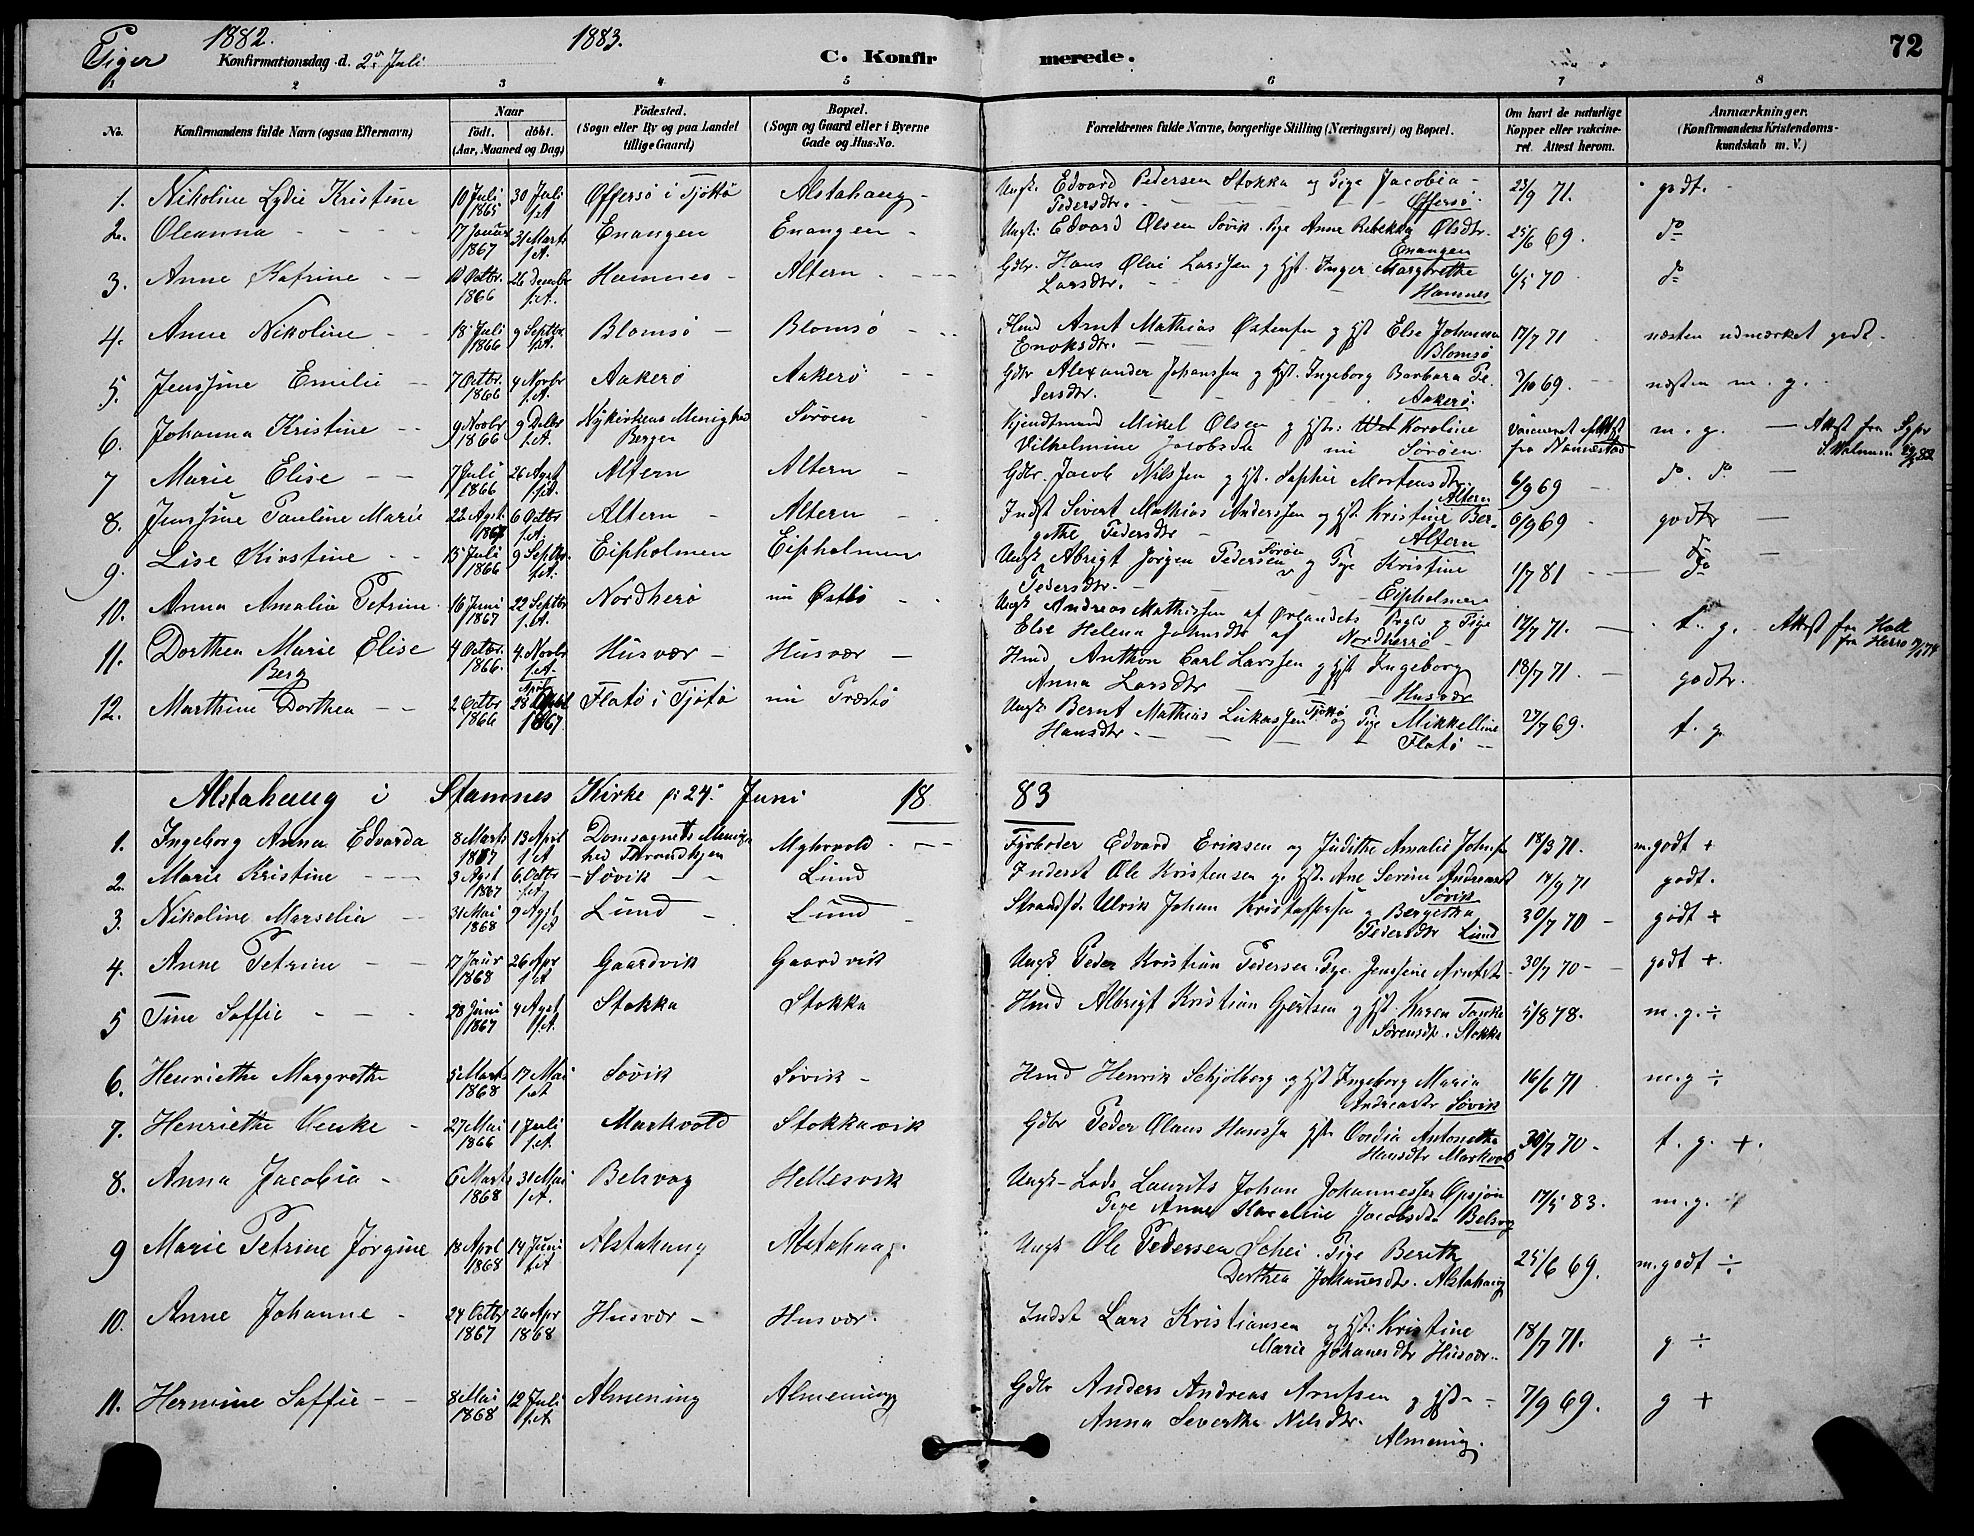 Piger 1882. 1883. 72
Konfirmationsdag d. 2. Juli C. Konfirmerede.
1 2 3 4 5 6 7 8
No. Konfirmandens fulde Navn (ogsaa Efternavn) Naar født. døbt. (Aar, Maaned og Dag) Fødested. (Sogn eller By og paa Landet tillige Gaard) Bopæl. (Sogn og Gaard eller i Byerne Gade og Hus-No. Forældrenes fulde Navne, borgerlige Stilling (Næringsvei) og Bopæl. Om havt de naturlige Kopper eller vakcineret. Attest herom. Anmærkninger. (Konfirmandens Kristendomskundskab m. V.)
1. Nikoline Lydie Kristine 10 Juli 1865 30 Juli s.A. Offersø i Tjøttø Alstahaug - Ungk. Edvard Pedersen Stokka og Pige Jacobia Pedersdtr. Offersø. 23/9 71. godt.
2. Oleanna 17 Januar 1867 31 Marts s.A. Enangen Enangen - Ungk. Edvard Olsen Søvik. Pige Anne Rebekka Olsdtr. Enangen 25/6 69. do
3. Anne Katrine 10 Octbr. 1866 26 Decembr s.A. Hamnes - Altern Gdbr. Hans Olai Larssen g Hst. Inger Margrethe Larsdtr. Hamnes 6/5 70 do
4. Anne Nikoline 18 Juli 1866 9 Septbr s.A. Blomsø - Blomsø Hmd Arnt Mathias Østensen g Hst Else Johanna Enoksdtr. Blomsø 17/7 71 næsten udmærket godt.
5. Jenssine Emilie 7 Octbr. 1866 4 Novbr s.A. Aakerø Aakerø Gdbr Alexander Johanssen g Hst. Ingeborg Barbara Pedersdtr. Aakerø. 7/10 69. næsten m. g.
6. Johanna Kristine 9 Novbr 1866 9 Decbr s.A. Nykirkens Menighed Bergen Sørøen Mikel Olsen g Hst: Karoline Vilhelmine Jacobsdtr nu Sørøen. Vaccineret Attest fra m. g. Attest fra
7 Marie Elise 7 Juli 1866 26 Agst s.A. Altern Altern Gdbr. Jacob Nilssen g Hst. Saphie Mortensdtr. Altern 6/9 69 do. do.
8. Jenssine Pauline Marie 22 Agst. 1867 6 Octbr s.A. Altern - Altern Indst Sivert Mathias Anderssen og Hst. Kristine Bergethe Pedersdtr Altern 6/9 69 godt
9. Lise Kirstine 15 Juli 1866 9 Septbr. s.A. Eipholmen Eipholmen Ungk Abrigt Jørgen Pedersen Sørøen og Pige Kristine Pedersdtr. Eipholmen 1/7 81 do
10. Anna Amalia Petrine 16 Juni 1867 22 Septbr s.A. Nordherø nu Østbø Ungk Andreas Mathissen af Ørlandets og Pige Else Helena Johnsdtr af Nordherrø 17/7 71. t. g. Attest fra
11. Dorthea Marie Elise Berg 4 Octbr. 1866. 4. Novbr s.A. Husvær - Husvær Hmd Anthon Carl Larssen g Hst Ingeborg Anna Larsdtr Husvær 18/7 71. godt.
12. Marthine Dorthea 2 Octbr 1866 28 April 1867. Flatø i Tjøtø nu Træsø Ungk Bernt Mathias Lukassen Tjøttø og Pige Mikkelline Hansdtr. Flatø 27/7 69. t. g.
Alstahaug i Stamnes Kirke 24. Juni 18 83
1. Ingeborg Anna Edvarda 8 Marts 1867 13 April s.A Domsognets Menighed Throndhjem Myhrvold Fyrbøder Edvard Eriksen og Judithe Amalie 18/3 71. m. godt +
2. Marie Kristine 3 Agst 1867 6. Octbr s.A. Søvik Lund Inderst Ole Kristensen g. Hst. Ane Serine Andreasdt Søvik 14/9 71 godt.
3. Nikoline Marselia 31 Mai 1868 9 Agst s.A Lund Lund Strands. Ulrik Johan Kristoffersen g Bergetha Pedersdtr Lund 30/7 70 - godt +
4. Anne Petrine 17 Jaur 1868 26 Apr s.A Gaardvik Gaardvik Ungk Peder Kristian Pedersen. Pige Jenssine Arntsdt 30/7 70 - godt +.
5 Tine Saffie 28 Juni 1867 4 Agst s.A. Stokka Stokka Hmd Albrigt Kristian Gjertsen g Hst. Karen Tanke Sørensdt. Stokka 5/8 78. m. g. ÷
6. Henriethe Margrethe 5 Marts 1868 17 Mai s.A Søvik Søvik - Hmd Henrik Schjølberg g Hst Ingeborg Maria Andreasdtr Søvik 16/6 71 m.g ÷
7. Henriethe Venke 27 Mai 1866 1 Juli s.A. Markvold Stokkavik Gdbr Peder Olaus Hanssen Hst Ovidia Antonetta Hansdtr Markvold 30/7 70 - t. g. +.
8. Anna Jacobia 6 Marts 1868 31 Mai s.A. Belsvag Hellesvik Ungk - Lods Laurits Johan Johannessen Opsjøn Pige Anne Karoline Jacobsdtr Belsvag 17/5 83. m.g.
9 Marie Petrine Jørgine 18 April 1868 14 Juni s.A Alstahaug Alstahaug. Ungk Ole Pedersen Schei. Pige Berith Dorthea Johannesdtr. Alstahaug 25/6 69. m. godt ÷
10. Anne Johanne 24 Octbr 1867 26 Apr 1868 Husvær - Husvær. Indst Lars Kristiansen og Hst. Kristine Marie Johannesdtr Husvær. 18/7 71. g ÷
11. Hermine Saffie 8 Mai 1868 12 Juli s.A. Almening Almening Gdbr Anders Andreas Arntsen g Hst - Anna Severthe Nilsdtr. Almening. 7/9 69. g +